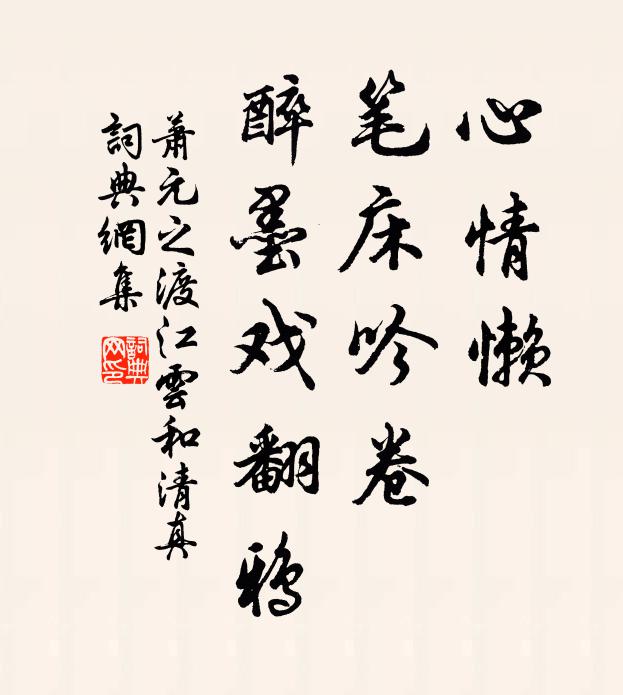 心情懒
笔床吟卷
醉墨戏翻鸦
萧元之渡江雲和清真
詞典網集
詞典網印